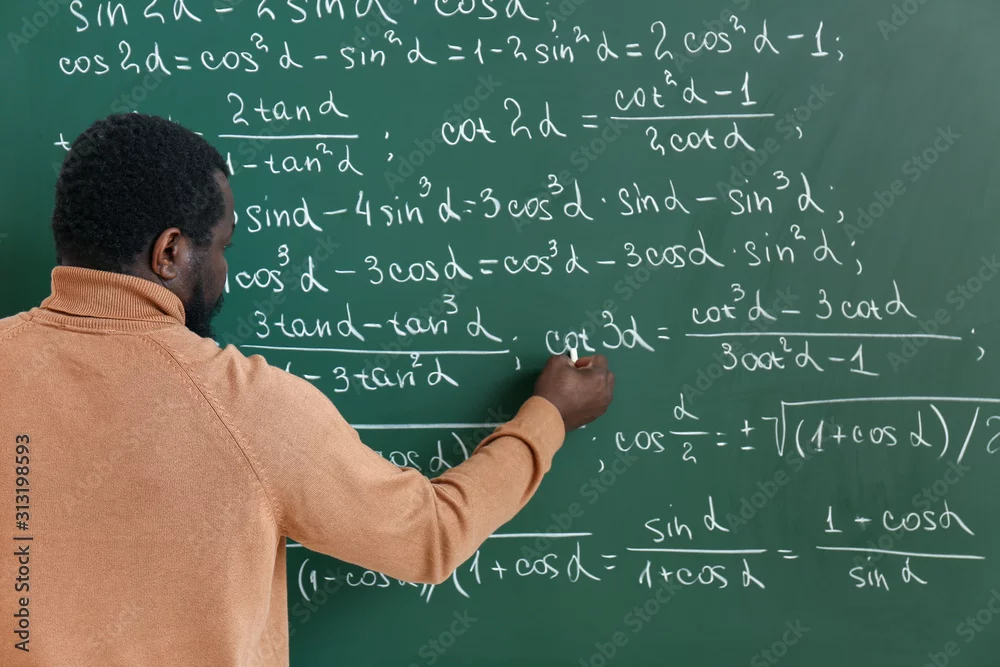 sin 2α = 2 sin α · cos α ;
cos 2α = cos²α – sin²α = 1-2 sin²α = 2 cos²α – 1 ;
2 tan α / 1 – tan²α ; cot 2α = cot²α – 1 / 2cot α ;
sin α – 4 sin³α = 3 cos³α · sin α – sin³α ;
cos³α – 3cos α = cos³α – 3cos α · sin²α ;
3tan α – tan³α / – 3tan²α ; cot 3α = cot³α – 3 cot α / 3cot²α – 1 ;
cos α) ; cos α/2 = ± √(1 + cos α) / 2
(1 – cos α) (1 + cos α) = sin α / 1 + cos α = 1 – cos α / sin α
Adobe Stock | #313198593